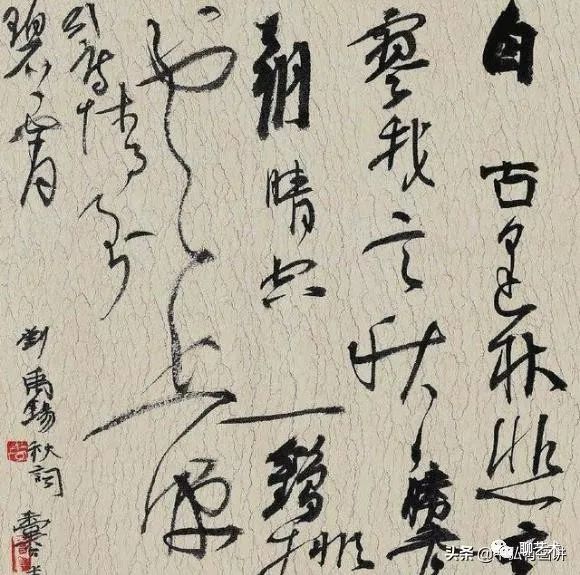 自古逢秋悲寂
寥我言秋日勝春
朝晴空一鶴排
云上便
引詩情到
碧霄
劉禹錫秋詞
头条
聊艺术